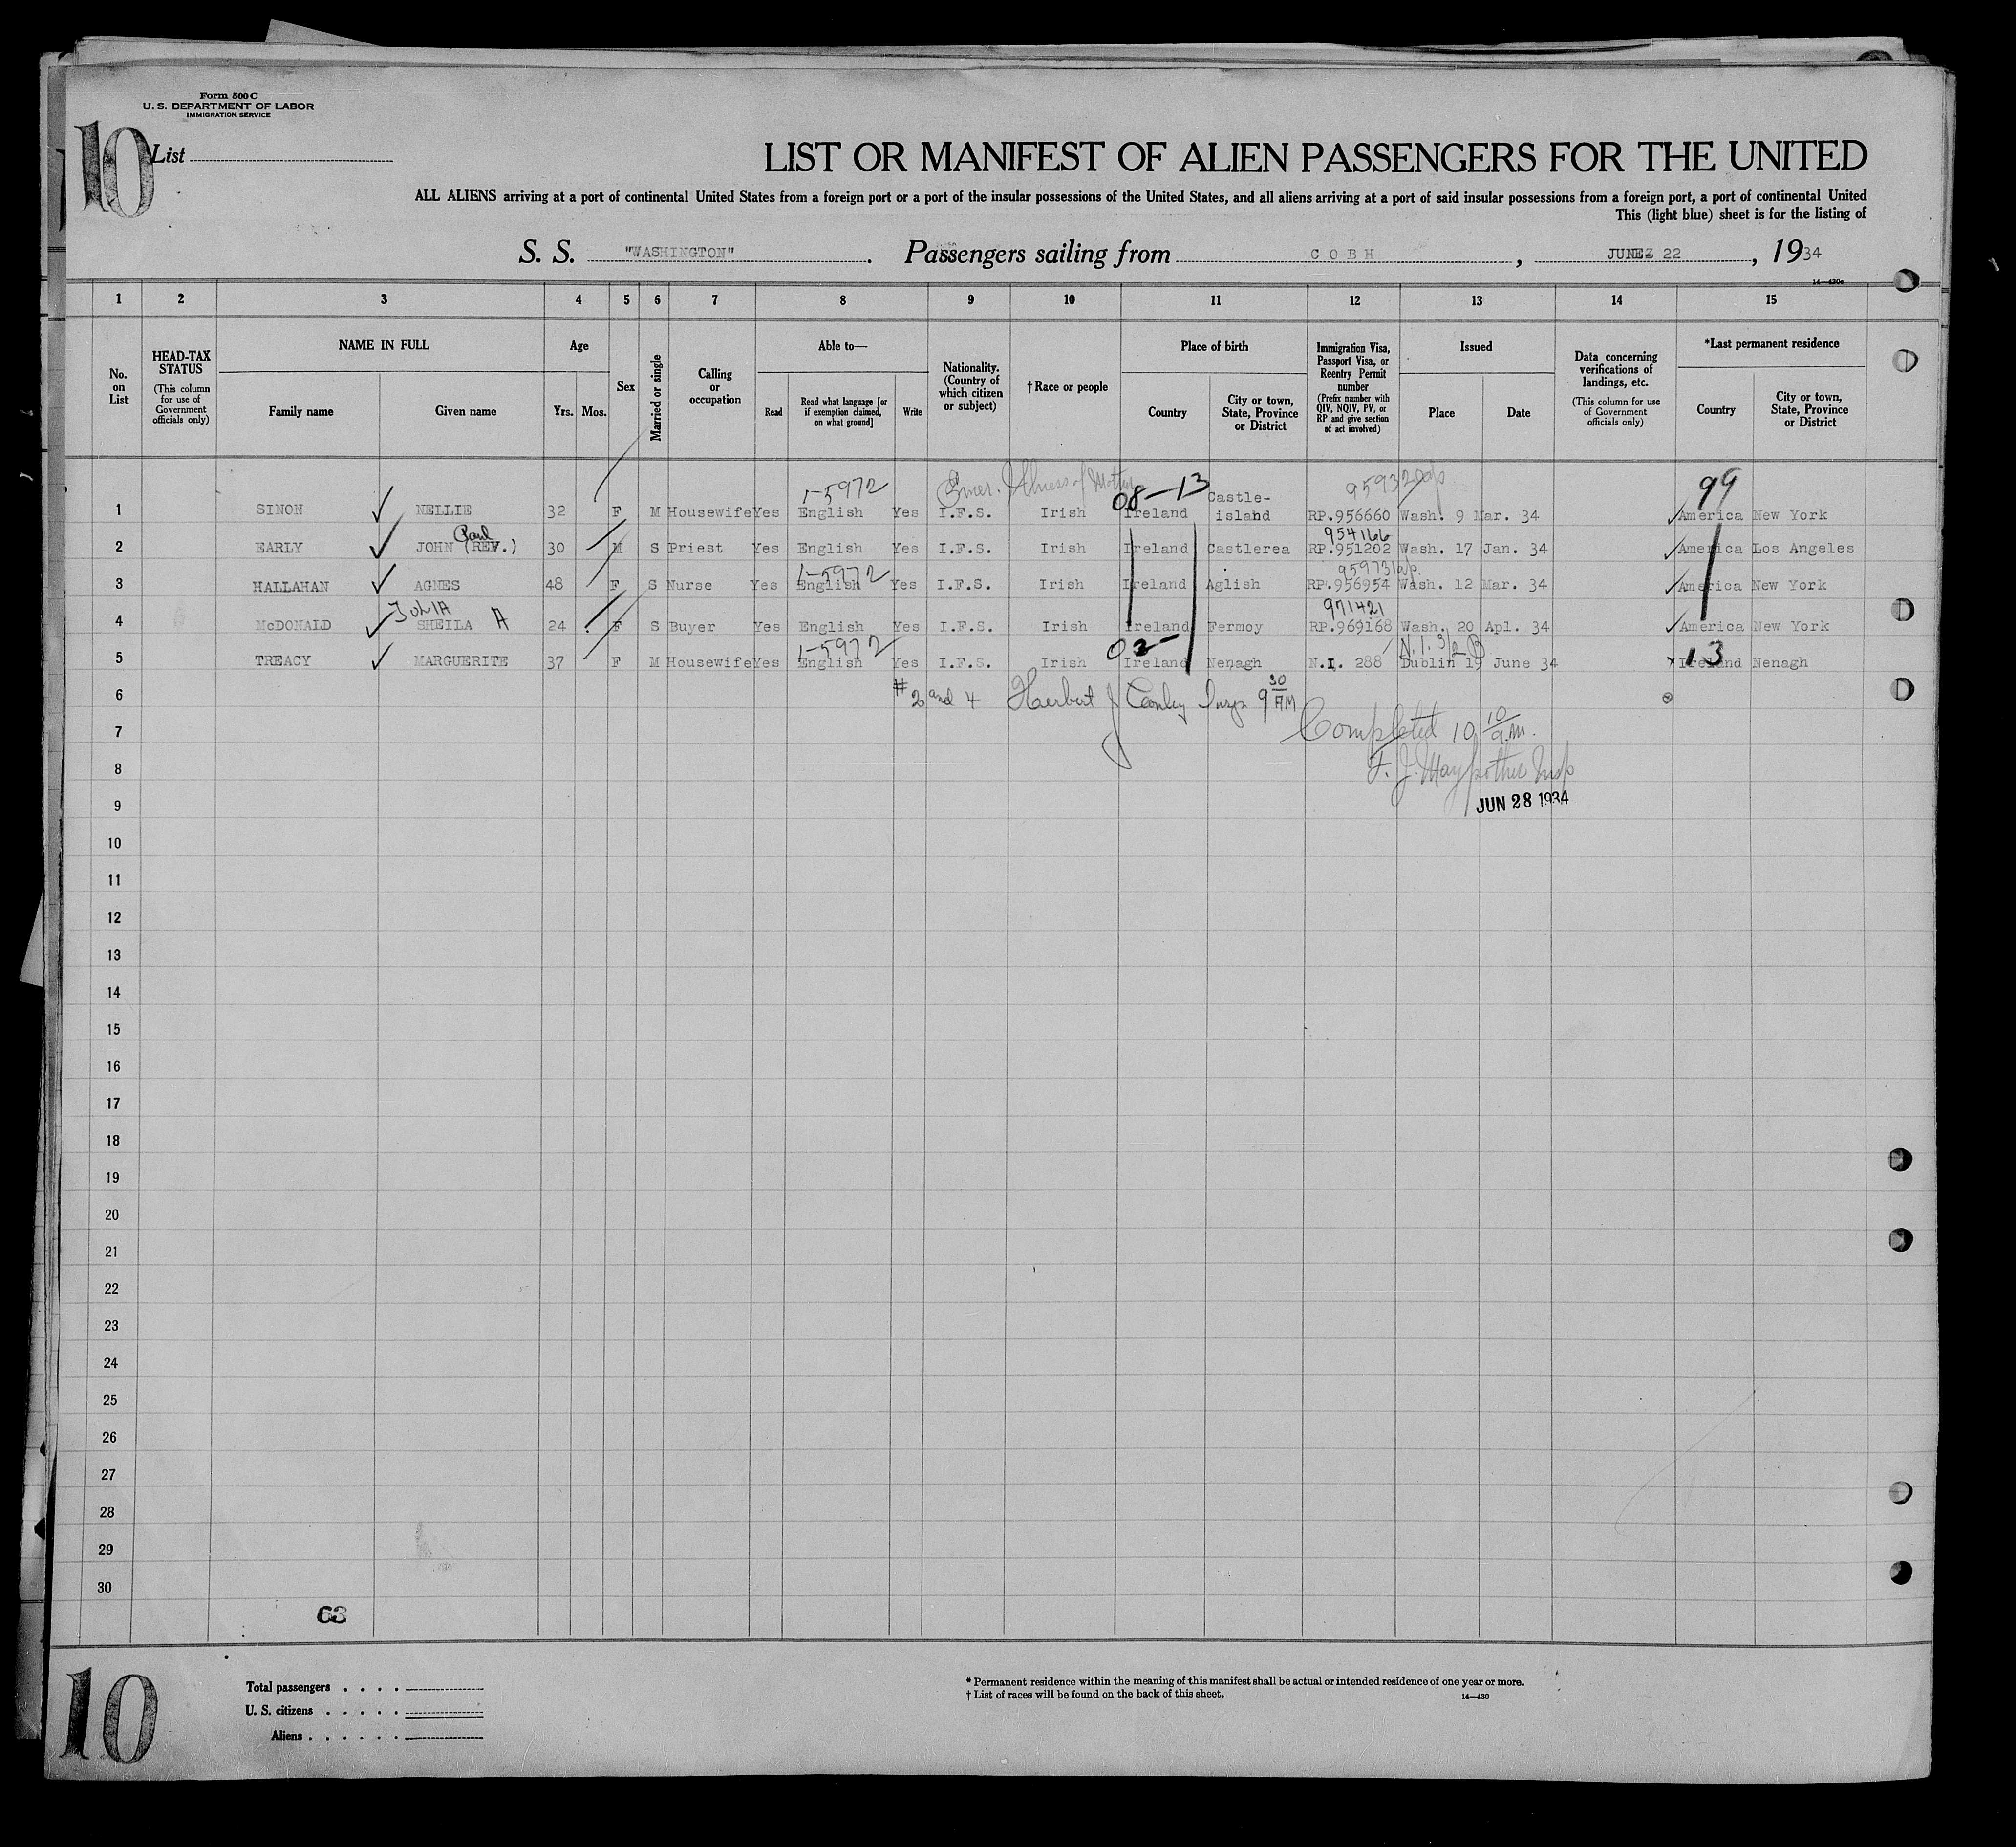 Form 500 C
U. S. DEPARTMENT OF LABOR
IMMIGRATION SERVICE
10
List
LIST OR MANIFEST OF ALIEN PASSENGERS FOR THE UNITED
ALL ALIENS arriving at a port of continental United States from a foreign port or a port of the insular possessions of the United States, and all aliens arriving at a port of said insular possessions from a foreign port, a port of continental United
This (light blue) sheet is for the listing of
S. S. "WASHINGTON". Passengers sailing from COBH, JUNE 22, 1934
14—430c
1 2 3 4 5 6 7 8 9 10 11 12 13 14 15
No. on List
HEAD-TAX STATUS (This column for use of Government officials only)
NAME IN FULL
Family name Given name
Age
Yrs. Mos.
Sex
Married or single
Calling or occupation
Able to—
Read Read what language [or if exemption claimed, on what ground] Write
Nationality. (Country of which citizen or subject)
†Race or people
Place of birth
Country City or town, State, Province or District
Immigration Visa, Passport Visa, or Reentry Permit number (Prefix number with QIV, NQIV, PV, or RP and give section of act involved)
Issued
Place Date
Data concerning verifications of landings, etc. (This column for use of Government officials only)
*Last permanent residence
Country City or town, State, Province or District
1-5972 Illness of Mother 08-13 95932 99
1 SINON NELLIE 32 F M Housewife Yes English Yes I.F.S. Irish Ireland Castle-island RP.956660 Wash. 9 Mar. 34 America New York
Paul 954166
2 EARLY JOHN (REV.) 30 M S Priest Yes English Yes I.F.S. Irish Ireland Castlerea RP.951202 Wash. 17 Jan. 34 America Los Angeles
1-5972 959731
3 HALLAHAN AGNES 48 F S Nurse Yes English Yes I.F.S. Irish Ireland Aglish RP.956954 Wash. 12 Mar. 34 America New York
JULIA 971421
4 McDONALD SHEILA A 24 F S Buyer Yes English Yes I.F.S. Irish Ireland Fermoy RP.969168 Wash. 20 Apl. 34 America New York
1-5972 02- N.I. 3/2 B 13
5 TREACY MARGUERITE 37 F M Housewife Yes English Yes I.F.S. Irish Ireland Nenagh N.I. 288 Dublin 19 June 34 Ireland Nenagh
6 #2 and 4 Herbert J 9 30 AM
7 Completed 10 10 a.m.
8 F. J. Maypother Insp
9 JUN 28 1934
10
11
12
13
14
15
16
17
18
19
20
21
22
23
24
25
26
27
28
29
30
63
10
Total passengers
U. S. citizens
Aliens
* Permanent residence within the meaning of this manifest shall be actual or intended residence of one year or more.
† List of races will be found on the back of this sheet.
14—430